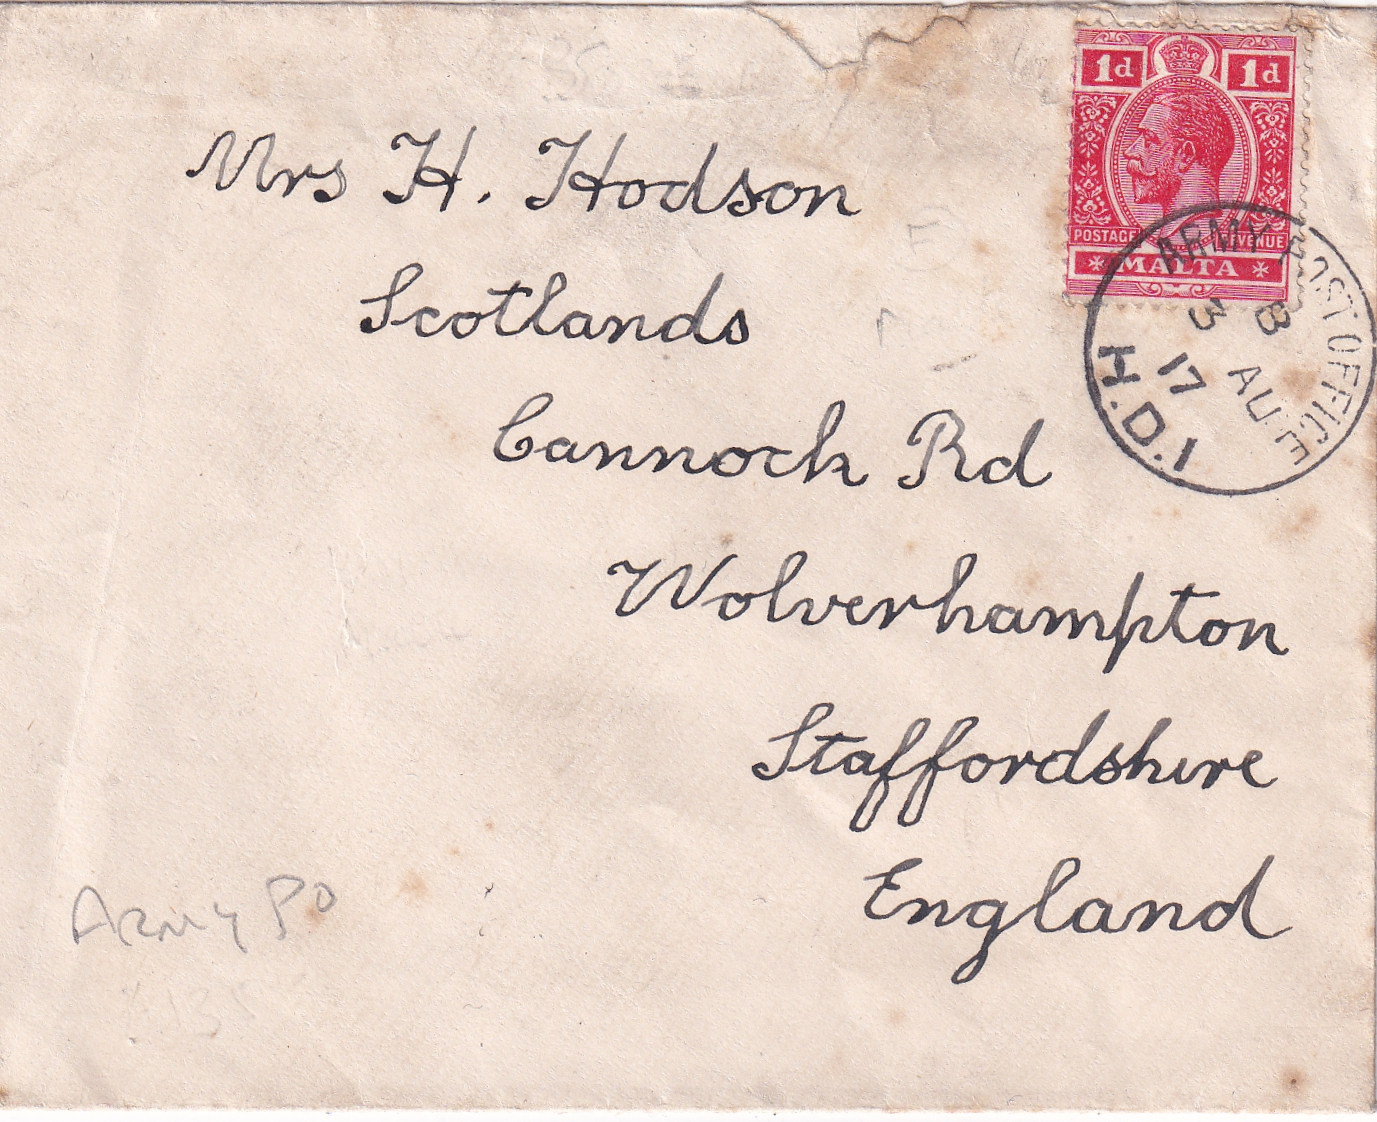 1d 1d
POSTAGE REVENUE
MALTA
ARMY POST OFFICE
3 8
17 AU
H.D.1
Mrs H. Hodson
Scotlands
Cannock Rd
Wolverhampton
Staffordshire
England
ARMY PO